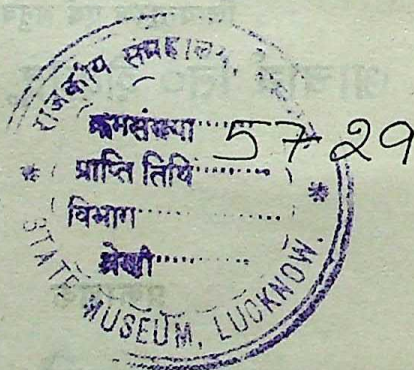 राजकीय संग्रहालय,
क्रमसंख्या 5729
प्राप्ति तिथि
विभाग
श्रेणी
STATE MUSEUM, LUCKNOW.